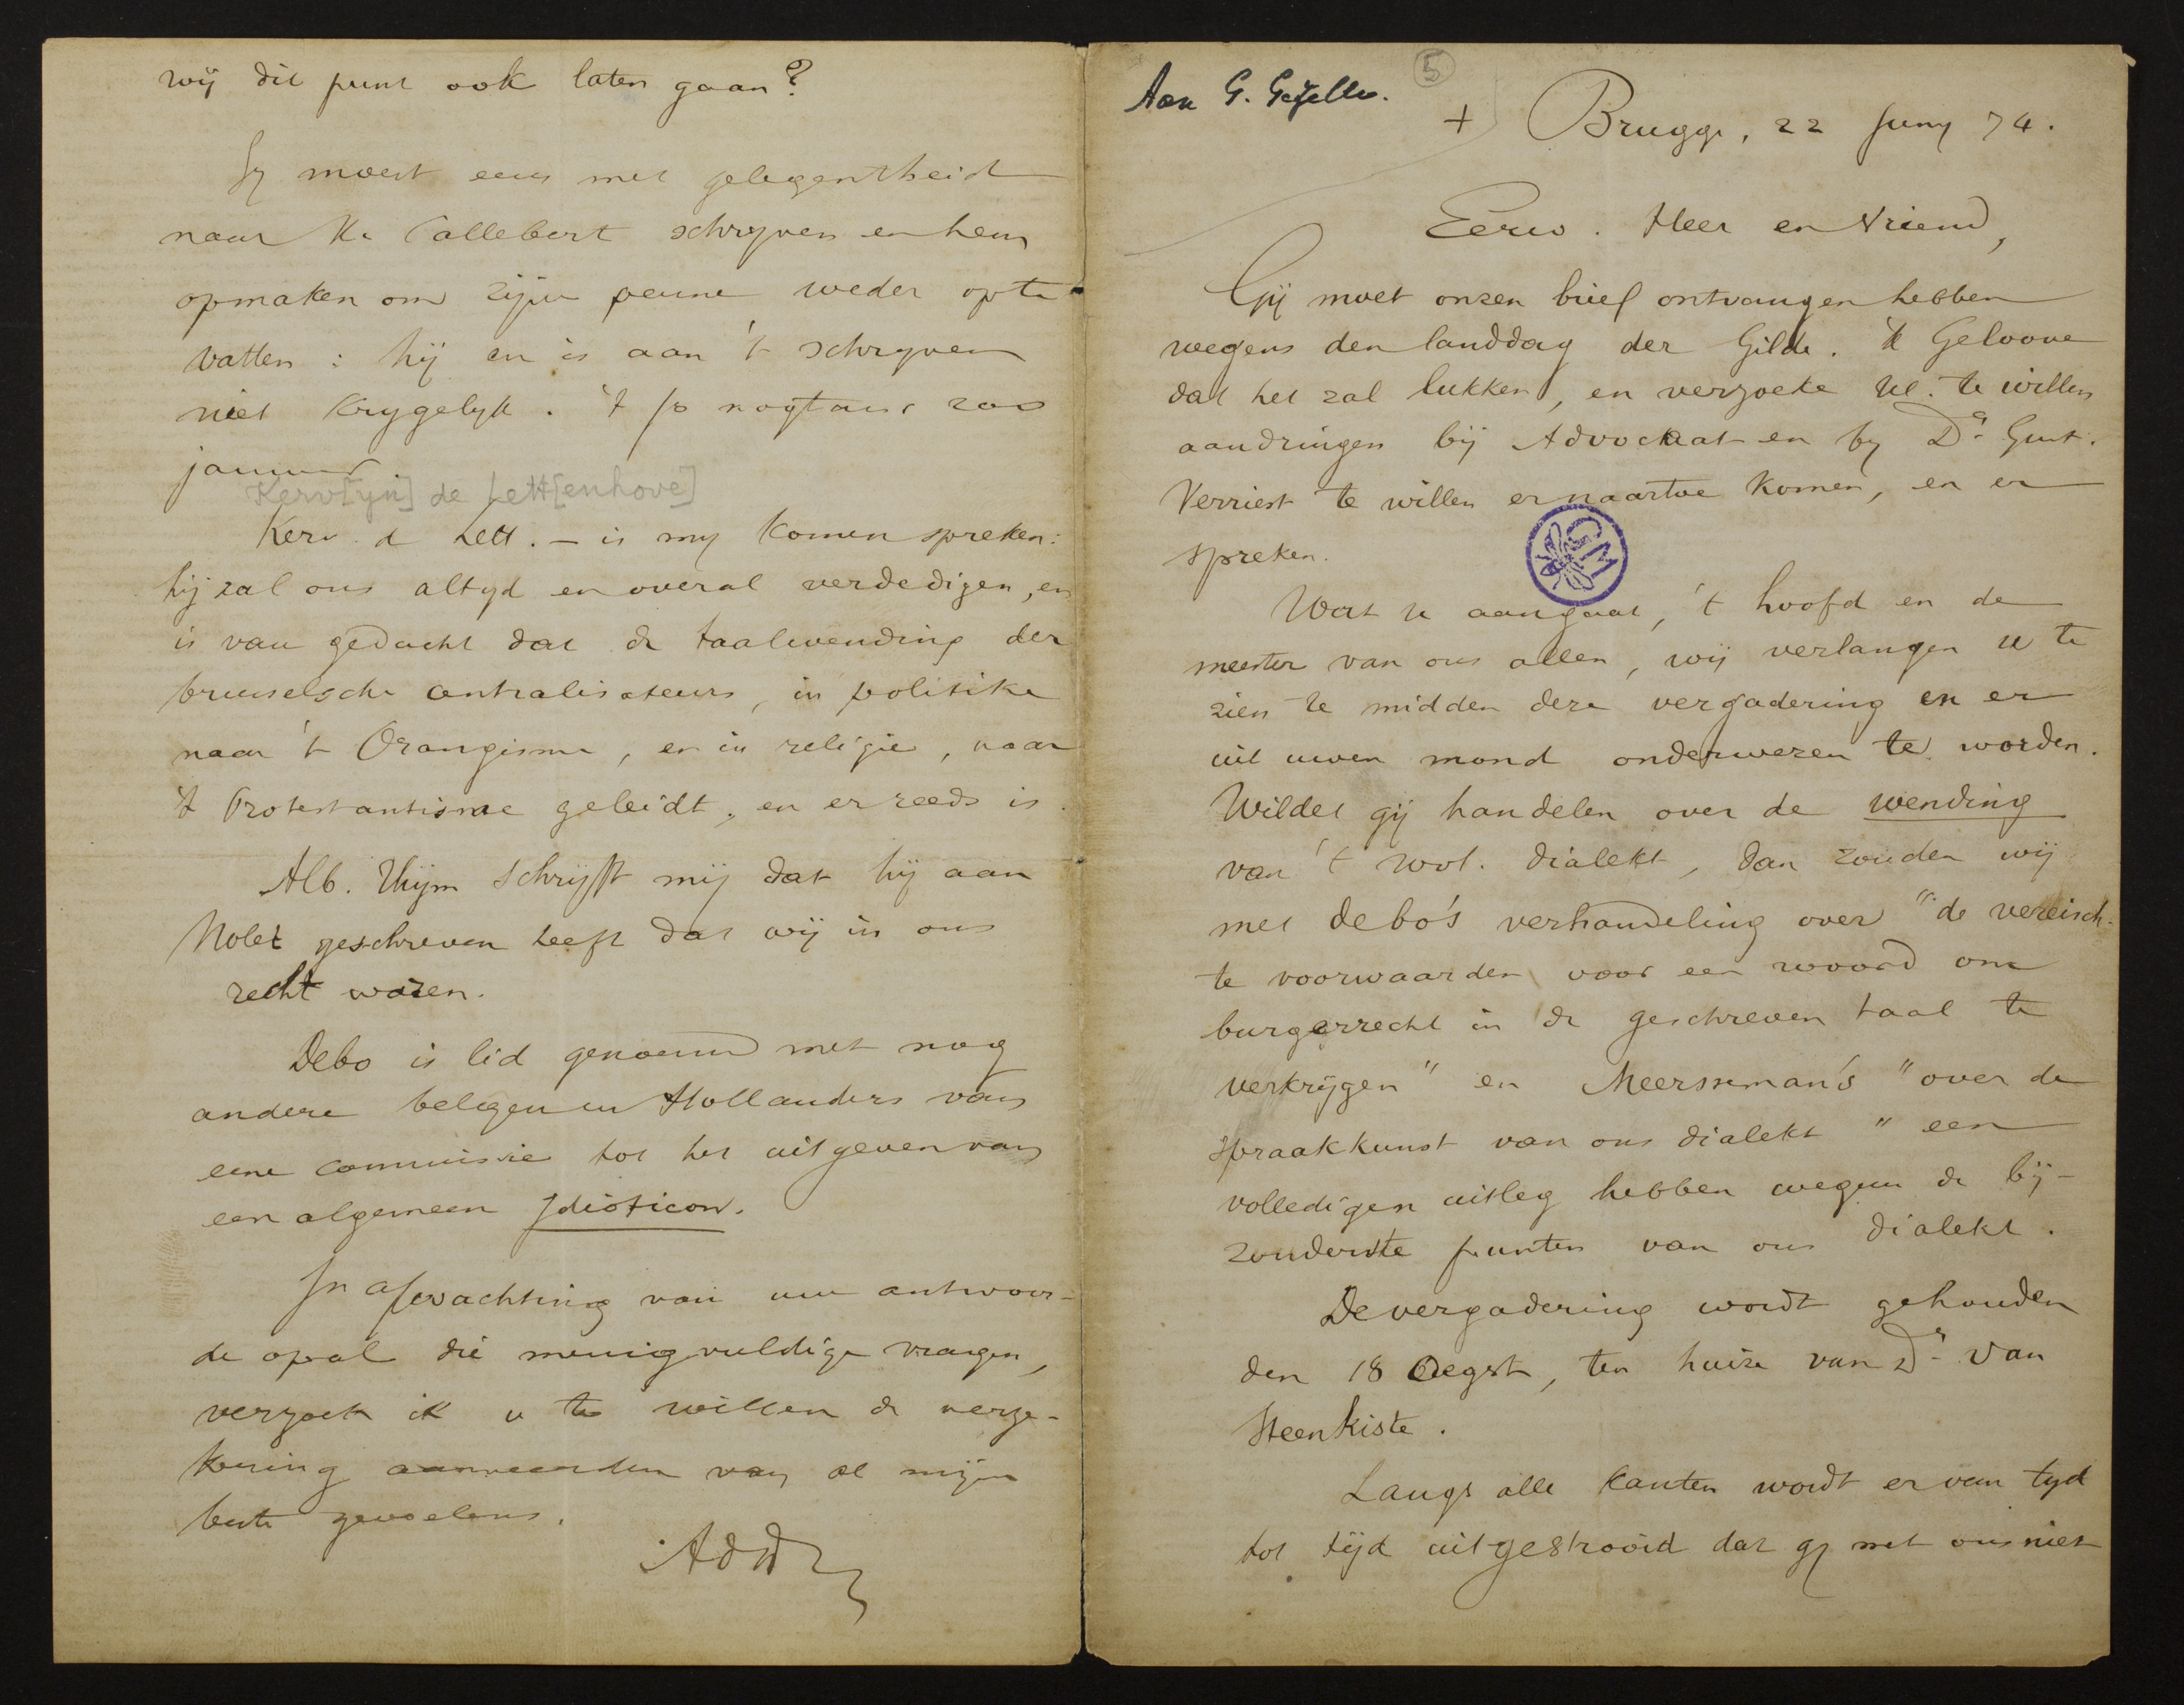 Aan G. Gezelle.
5
+ Brugge, 22 Juny 74.
Eerw. Heer en Vriend,
Gij moet onzen brief ontvangen hebben
wegens den landdag der Gilde. 'k Geloove
dat het zal lukken, en verzoeke Ue. te willen
aandringen bij Advockaat en by Dr Gust.
Verriest te willen ernaartoe komen, en er
spreken.
GM
Wat u aangaat, 't hoofd en de
meester van ons allen, wij verlangen u te
zien te midden deze vergadering en er
uit uwen mond onderwezen te worden.
Wildet gij handelen over de wending
van 't wvl. dialekt, dan zouden wij
met debo's verhandeling over "de vereisch-
te voorwaarden voor een woord om
burgerrecht in de geschreven taal te
verkrijgen" en Meersseman's "over de
spraakkunst van ons dialekt" een
volledigen uitleg hebben wegens de bij-
zonderste punten van ons dialekt.
De vergadering wordt gehouden
den 18 Oegst, ten huize van Dr Van
Steenkiste.
Langs alle kanten wordt er van tyd
tot tijd uitgestrooid dat gy met ons niet
wij dit punt ook laten gaan?
Gy moest eens met gelegentheid
naar Callebert schryven en hem
opmaken om zijne penne weder op te
vatten: hij en is aan 't schryven
niet krygelyk. 't is nogtans zoo
jammer.
Kerv[yn] de Lett[enhove]
Kerv. d Lett. - is my komen spreken:
hij zal ons altyd en overal verdedigen, en
is van gedacht dat de taalwending der
brusselsche centralisateurs, in politike
naar 't Orangisme, en in religie, naar
't Protestantisme geleidt, en er reeds is.
Alb. Thijm schrijft mij dat hij aan
Nolet geschreven heeft dat wij in ons
recht waren.
Debo is lid genoemd met nog
andere belgen en Hollanders van
eene commissie tot het uitgeven van
een algemeen Idioticon.
In afwachting van uw antwoor-
de op al die menigvuldige vragen,
verzoek ik u te willen de verze-
kering aanveerden van al mijne
beste gevoelens.
AdW